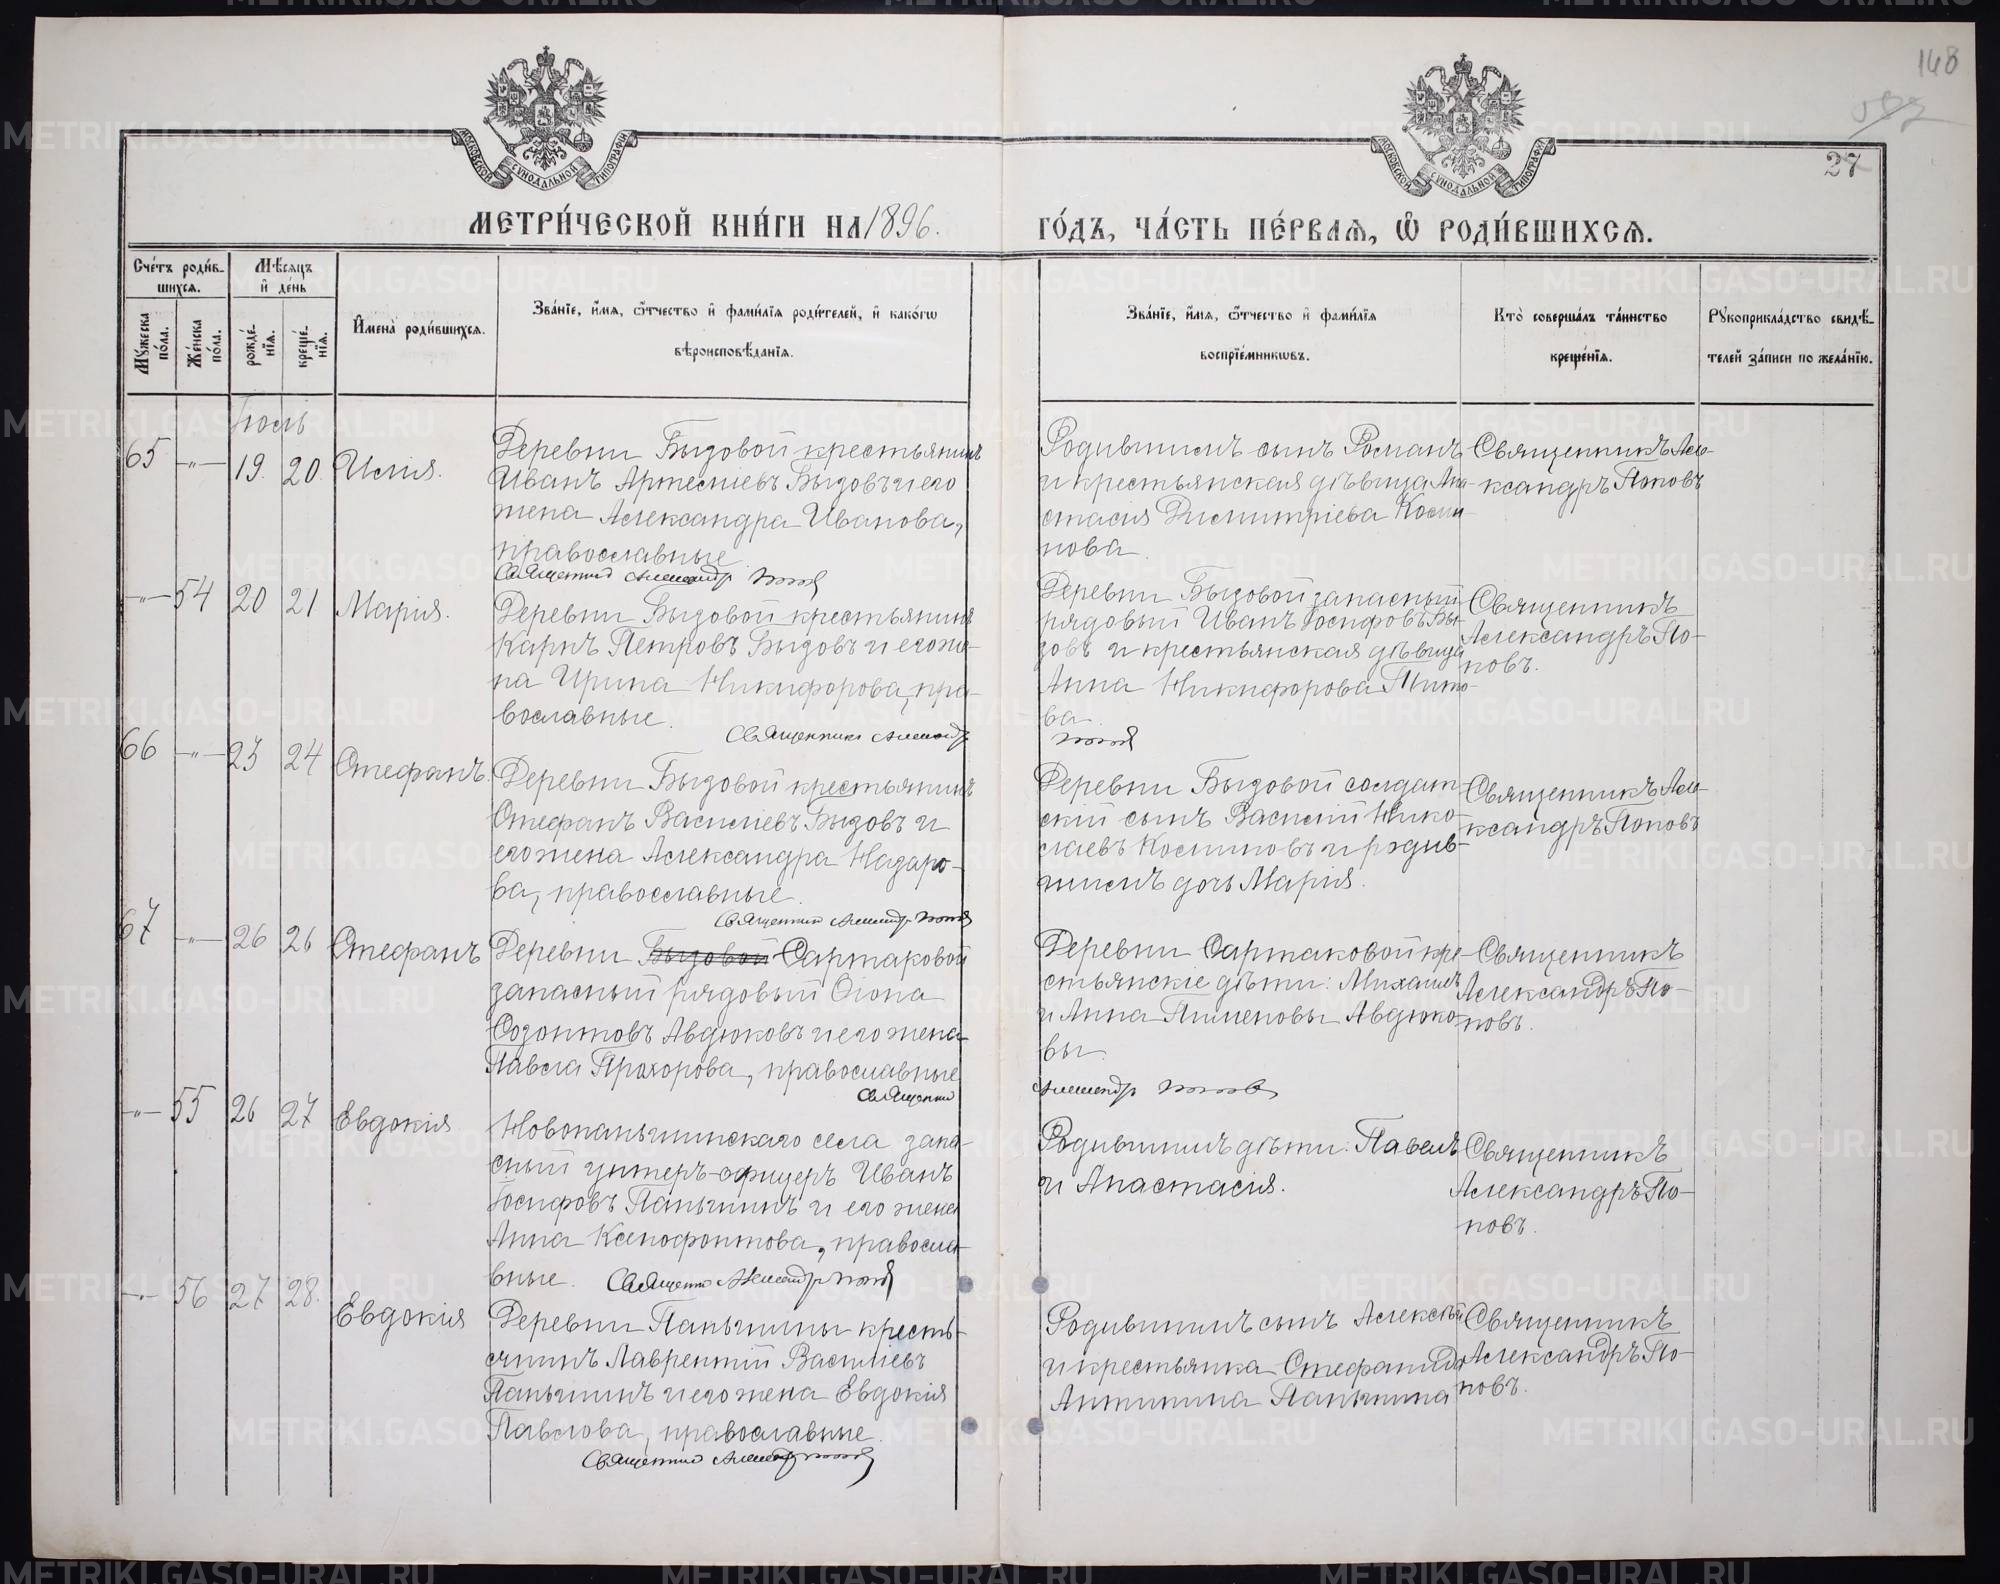 148
27
МОСКОВСКОЙ СѴНОДАЛЬНОЙ ТИПОГРАФІИ
МОСКОВСКОЙ СѴНОДАЛЬНОЙ ТИПОГРАФІИ
МЕТРИ́ЧЕСКОЙ КНИ́ГИ НА 1896. ГО́ДЪ, ЧА́СТЬ ПЕ́РВАЯ, Ѽ РОДИ́ВШИХСЯ.
Сче́тъ роди́в-
шихся.
Мꙋ́жеска по́ла.
Же́нска по́ла.
Мѣ́сяцъ
и҆ де́нь
рожде́-
нїя.
креще́-
нїя.
И҆мена̀ роди́вшихся.
Зва́нїе, и҆́мя, ѻ҆́тчество и҆ фами́лїя роди́телей, и҆ како́гѡ
вѣроисповѣ́данїя.
Зва́нїе, и҆́мя, ѻ҆́тчество и҆ фами́лїя
воспрїе́мникѡвъ.
Кто̀ соверша́лъ та́инство
креще́нїя.
Рꙋкоприкла́дство свидѣ́-
телей за́писи по жела́нїю.
Іюль
65 —"— 19. 20. Илія.
Деревни Быдовой крестьянинъ
Иванъ Артеміевъ Быдовъ и его
жена Александра Иванова,
православные
Священник Александр Попов
Родившимъ сынъ Романъ
и крестьянская дѣвица Ана-
стасія Димитріева Косми-
нова.
Священникъ Але-
ксандръ Поповъ
—"— 54 20 21 Марія.
Деревни Быдовой крестьянинъ
Карпъ Петровъ Быдовъ и его же-
на Ирина Никифорова, пра-
вославные.
Священник Александр
Деревни Быдовой запасный
рядовый Иванъ Іосифовъ Бы-
довъ и крестьянская дѣвица
Анна Никифорова Тито-
ва.
Попов
Священникъ
Александръ По-
повъ.
66 —"— 23 24 Стефанъ.
Деревни Быдовой крестьянинъ
Стефанъ Василіевъ Быдовъ и
его жена Александра Назаро-
ва, православные.
Священник Александр Попов
Деревни Быдовой солдат-
скій сынъ Василій Нико-
лаевъ Косминовъ и родив-
шимъ дочь Марія.
Священникъ Але-
ксандръ Поповъ
67 —"— 26 26 Стефанъ
Деревни Быдовой Сартаковой
запасный рядовый Агапа
Созонтовъ Авдюковъ и его жена
Павла Прохорова, православные
Священник
Деревни Сартаковой кре-
стьянскіе дѣти: Михаилъ
и Анна Пименовы Авдюко-
вы.
Александр Попов
Священникъ
Александръ По-
повъ.
—"— 55 26 27 Евдокія
Новопаньшинскаго села запа-
сный унтеръ-офицеръ Иванъ
Іосифовъ Паньшинъ и его жена
Анна Ксенофонтова, правосла-
вные. Священник Александр Попов
Родившимъ дѣти: Павелъ
и Анастасія.
Священникъ
Александръ По-
повъ.
—"— 56 27 28. Евдокія
Деревни Паньшины кресть-
янинъ Лаврентій Василіевъ
Паньшинъ и его жена Евдокія
Павлова, православные.
Священник Александр Попов
Родившимъ сынъ Алексѣй
и крестьянка Стефанида
Антипина Паньшина
Священникъ
Александръ По-
повъ.
METRIKI.GASO-URAL.RU